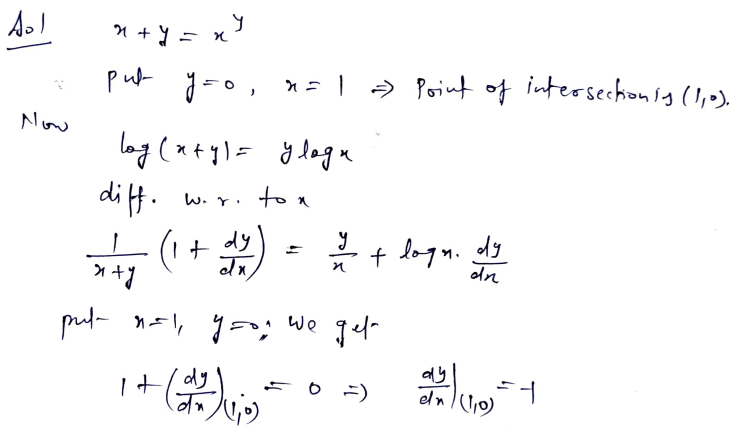 Sol x + y = x^y
put y=0, x=1 ⇒ Point of intersection is (1,0).
Now
log(x+y) = y log x
diff. w.r. to x
1/(x+y) (1 + dy/dx) = y/x + log x. dy/dx
put x=1, y=0; we get
1 + (dy/dx)(1,0) = 0 ⇒ dy/dx|(1,0) = -1